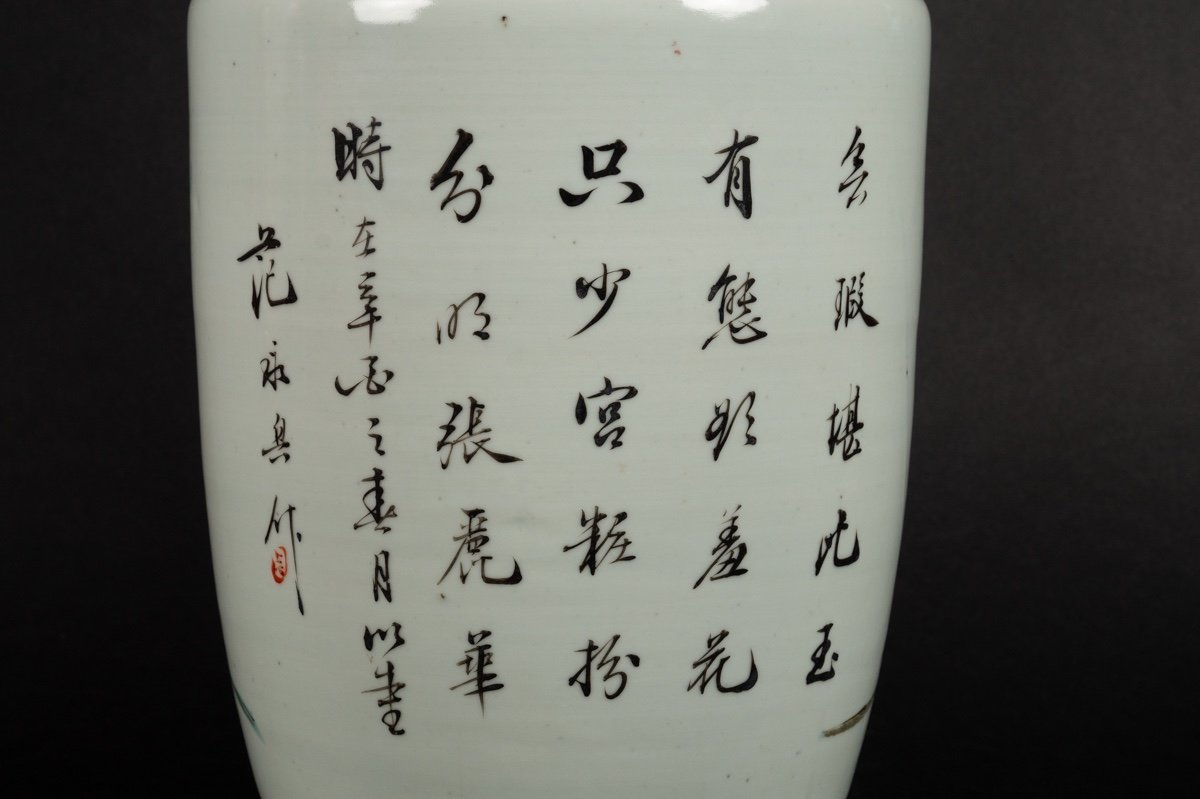 無瑕堪比玉
有態欲羞花
只少宮粧扮
分明張麗華
時在辛酉之春月以
范永興作